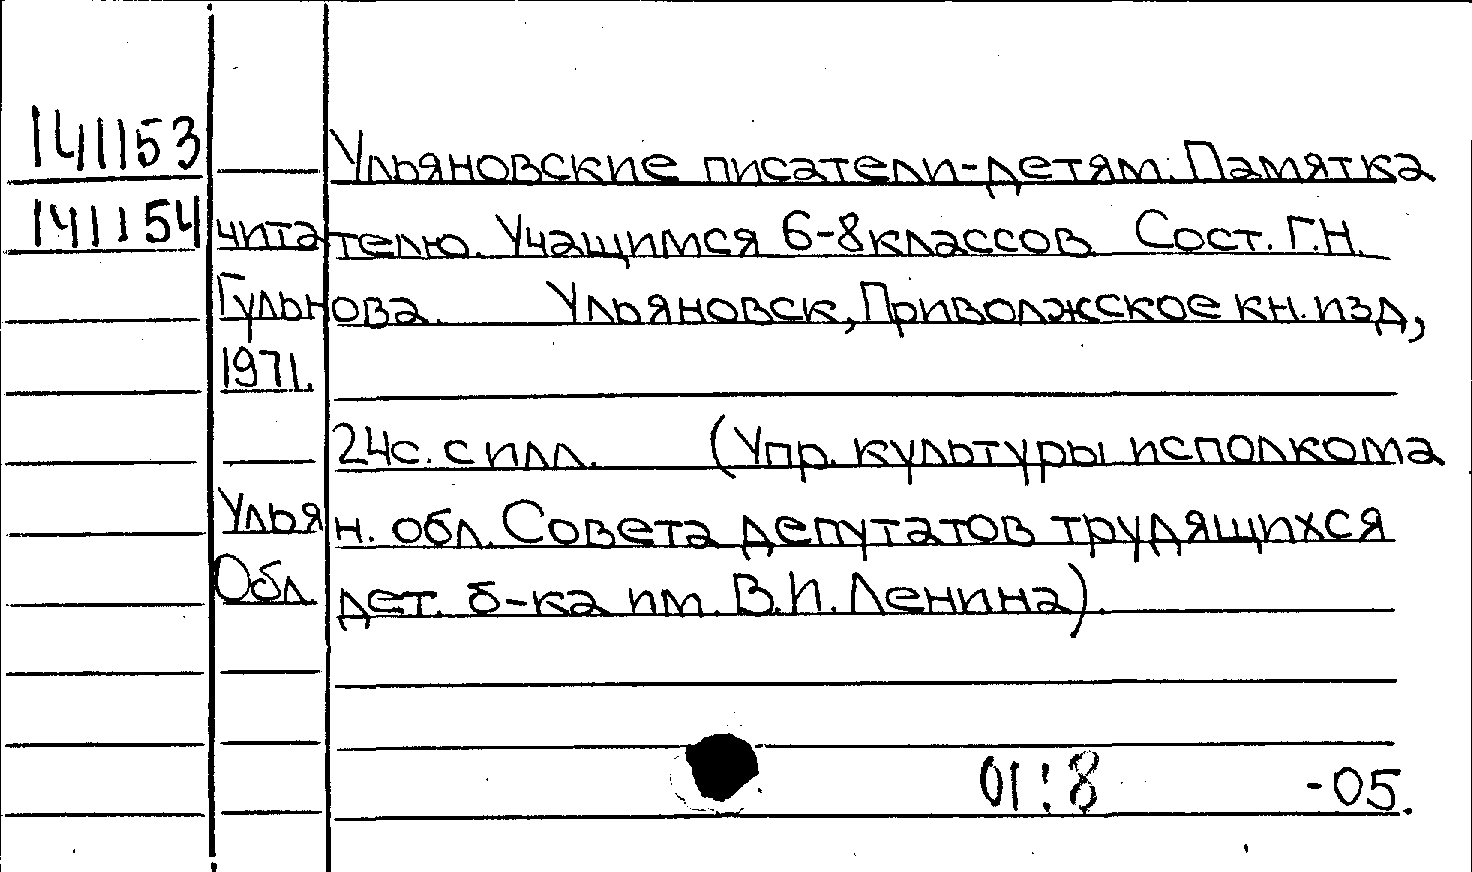 141153 Ульяновские писатели-детям. Памятка
141154 читателю. Учащимся 6-8 классов. Сост. Г.Н.
Гульнова. Ульяновск, Приволжское кн. изд,
1971.
24с. с илл. (Упр. культуры исполкома
Ульян. обл. Совета депутатов трудящихся
Обл. дет. б-ка им. В.И. Ленина).
01:8 -05.